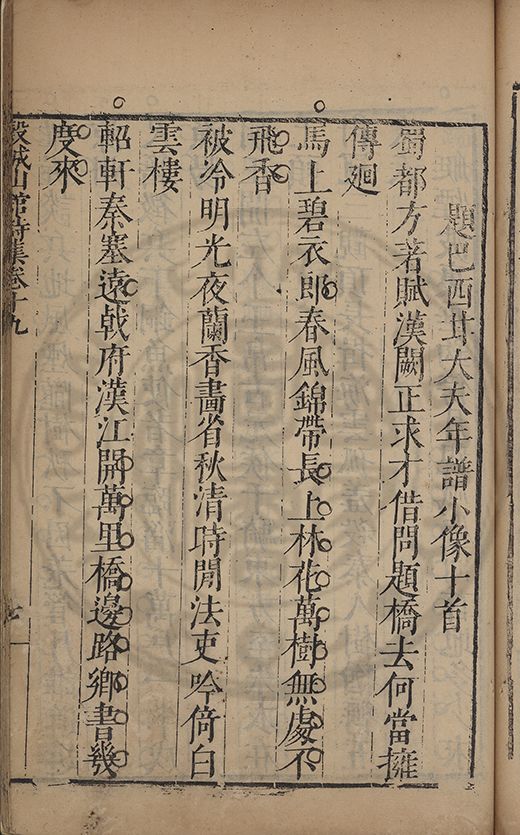 題巴西廿大夫年譜小像十首
蜀都方著賦漢闕正求才借問題橋去何當擁
傳廻
馬上碧衣郎春風錦帶長上林花萬樹無處不
飛香
被冷明光夜蘭香畵省秋清時閒法吏吟倚白
雲樓
軺軒秦塞遠戟府漢江開萬里橋邊路鄉書幾
度來
穀城山館詩集卷十九
七